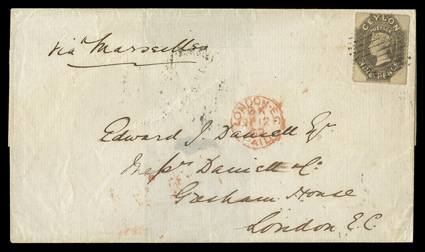 via Marseilles
CEYLON
POSTAGE
PENCE
LONDON-E.C
12
PAID
Edward J. Daniell Esqr
Messrs Daniell & Co.
Gresham House
London E.C.